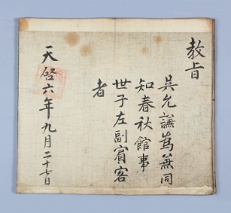 教旨
吳允謙爲兼同
知春秋館事
世子左副賓客
者
天啓六年九月二十七日